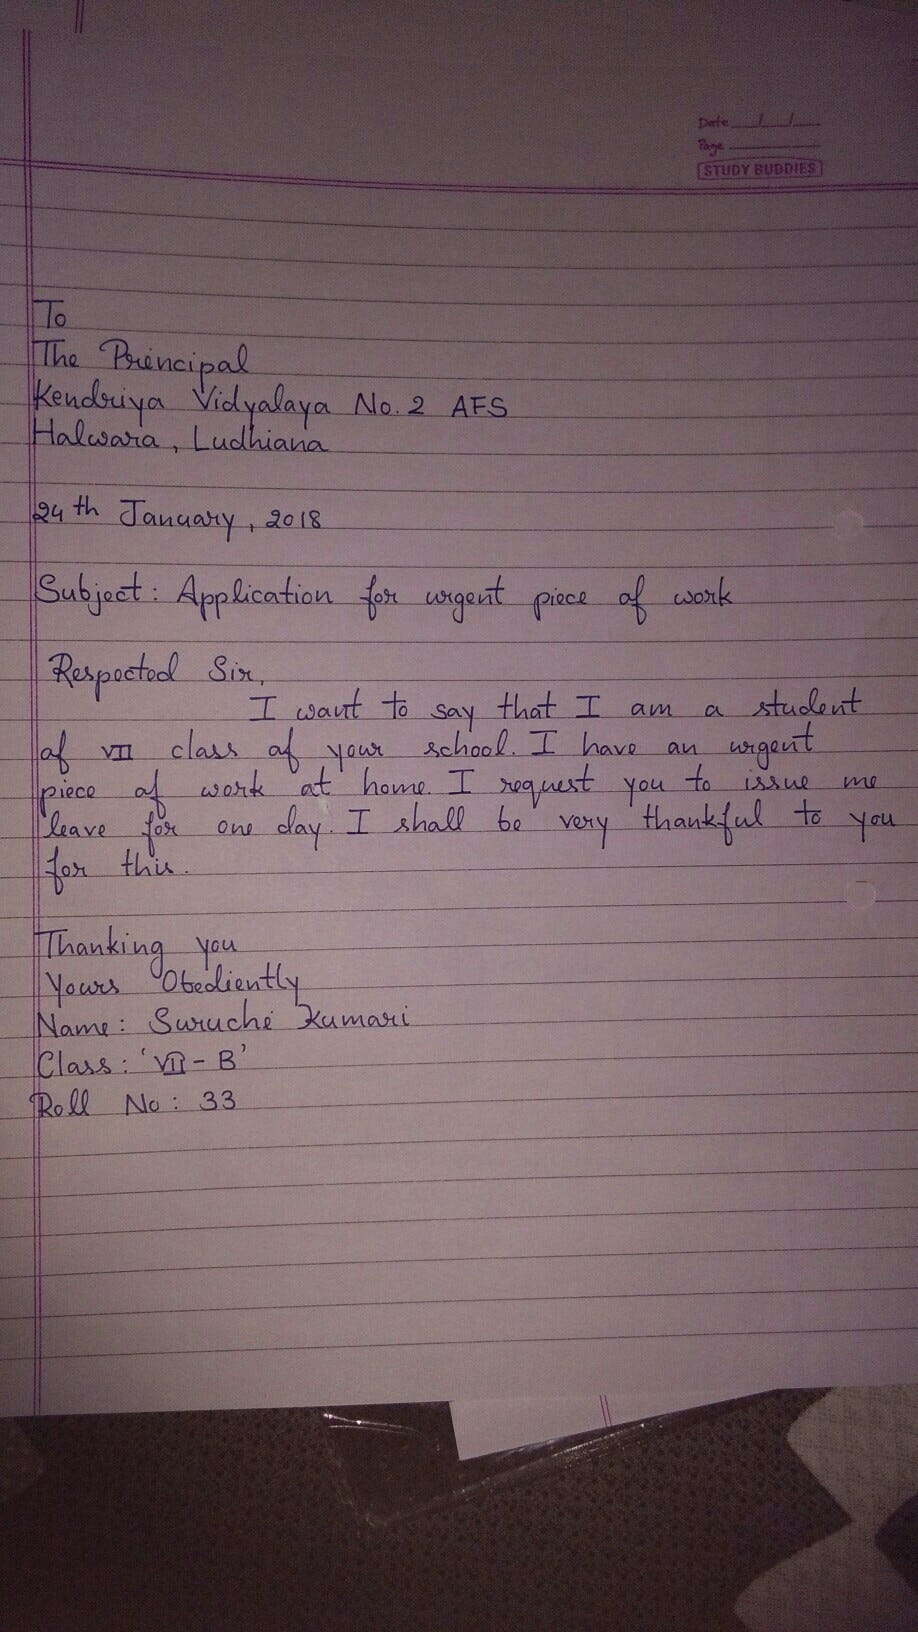 Date / /
Page
STUDY BUDDIES
To
The Principal
Kendriya Vidyalaya No. 2 AFS
Halwara, Ludhiana
24th January, 2018
Subject: Application for urgent piece of work
Respected Sir,
I want to say that I am a student
of VII class of your school. I have an urgent
piece of work at home. I request you to issue me
leave for one day. I shall be very thankful to you
for this.
Thanking you
Yours Obediently
Name: Suruchi Kumari
Class: 'VII-B'
Roll No: 33